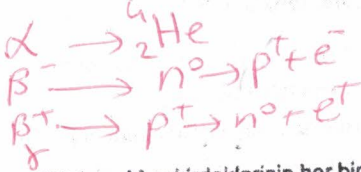 α → ⁴₂He
β⁻ → n⁰ → p⁺ + e⁻
β⁺ → p⁺ → n⁰ + e⁺
γ
her bir